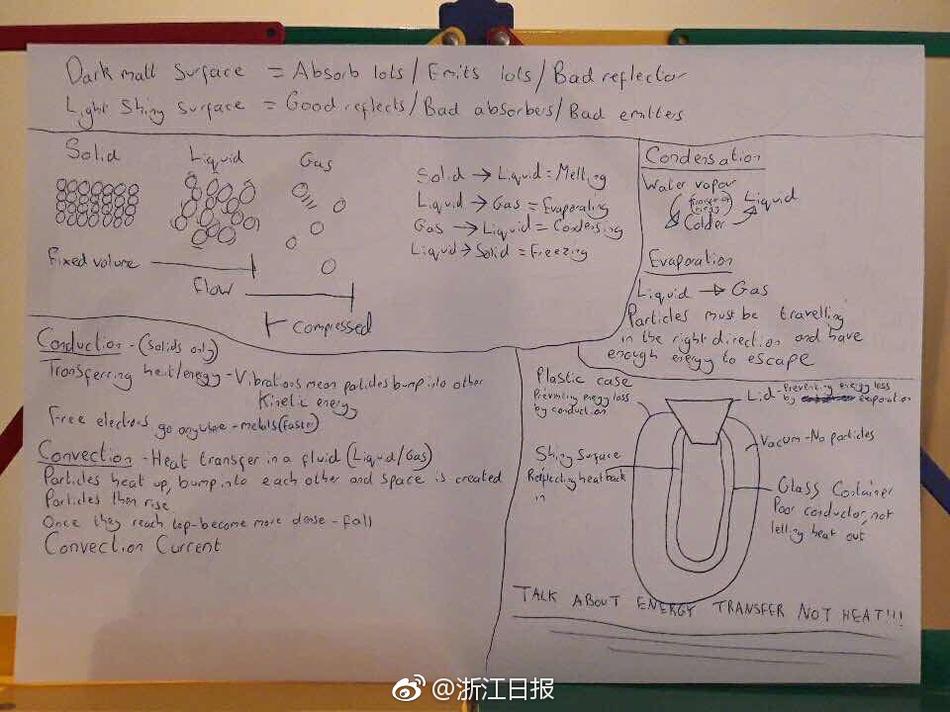 Dark matt surface = Absorb lots / Emits lots / Bad reflector
Light Shiny surface = Good reflects / Bad absorbers / Bad emitters
Solid
Liquid
Gas
Fixed volume
flow
compressed
Solid → Liquid = Melting
Liquid → Gas = Evaporating
Gas → Liquid = Condensing
Liquid → Solid = Freezing
Condensation
Water vapour
energy
Colder
Liquid
Evaporation
Liquid → Gas
Particles must be travelling
in the right direction and have
enough energy to escape
Conduction - (Solids only)
Transferring heat/energy - Vibrations mean paticles bump into other
Kinetic energy
Free electrons go anywhere - metals (faster)
Convection - Heat transfer in a fluid (Liquid/Gas)
Particles heat up, bump into each other and space is created
Particles then rise
Once they reach top - become more dense - fall
Convection Current
Plastic case
Preventing energy loss
by conduction
Shiny Surface
Reflecting heat back
in
Lid - Preventing energy loss
by evaporation
Vacum - No particles
Glass Container
Poor conductor, not
letting heat out
TALK ABOUT ENERGY TRANSFER NOT HEAT!!!
@浙江日报